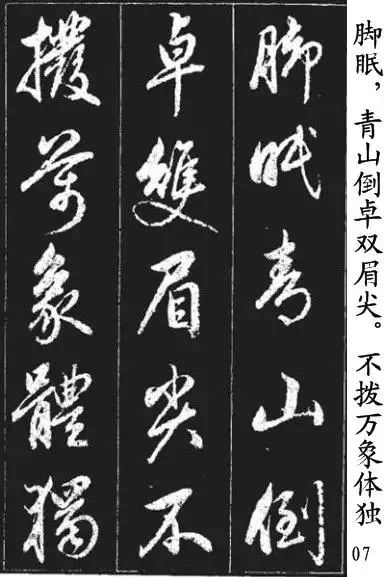 脚眠青山倒
卓雙眉尖不
撥萬象體獨
脚眠，青山倒卓双眉尖。不拨万象体独
07